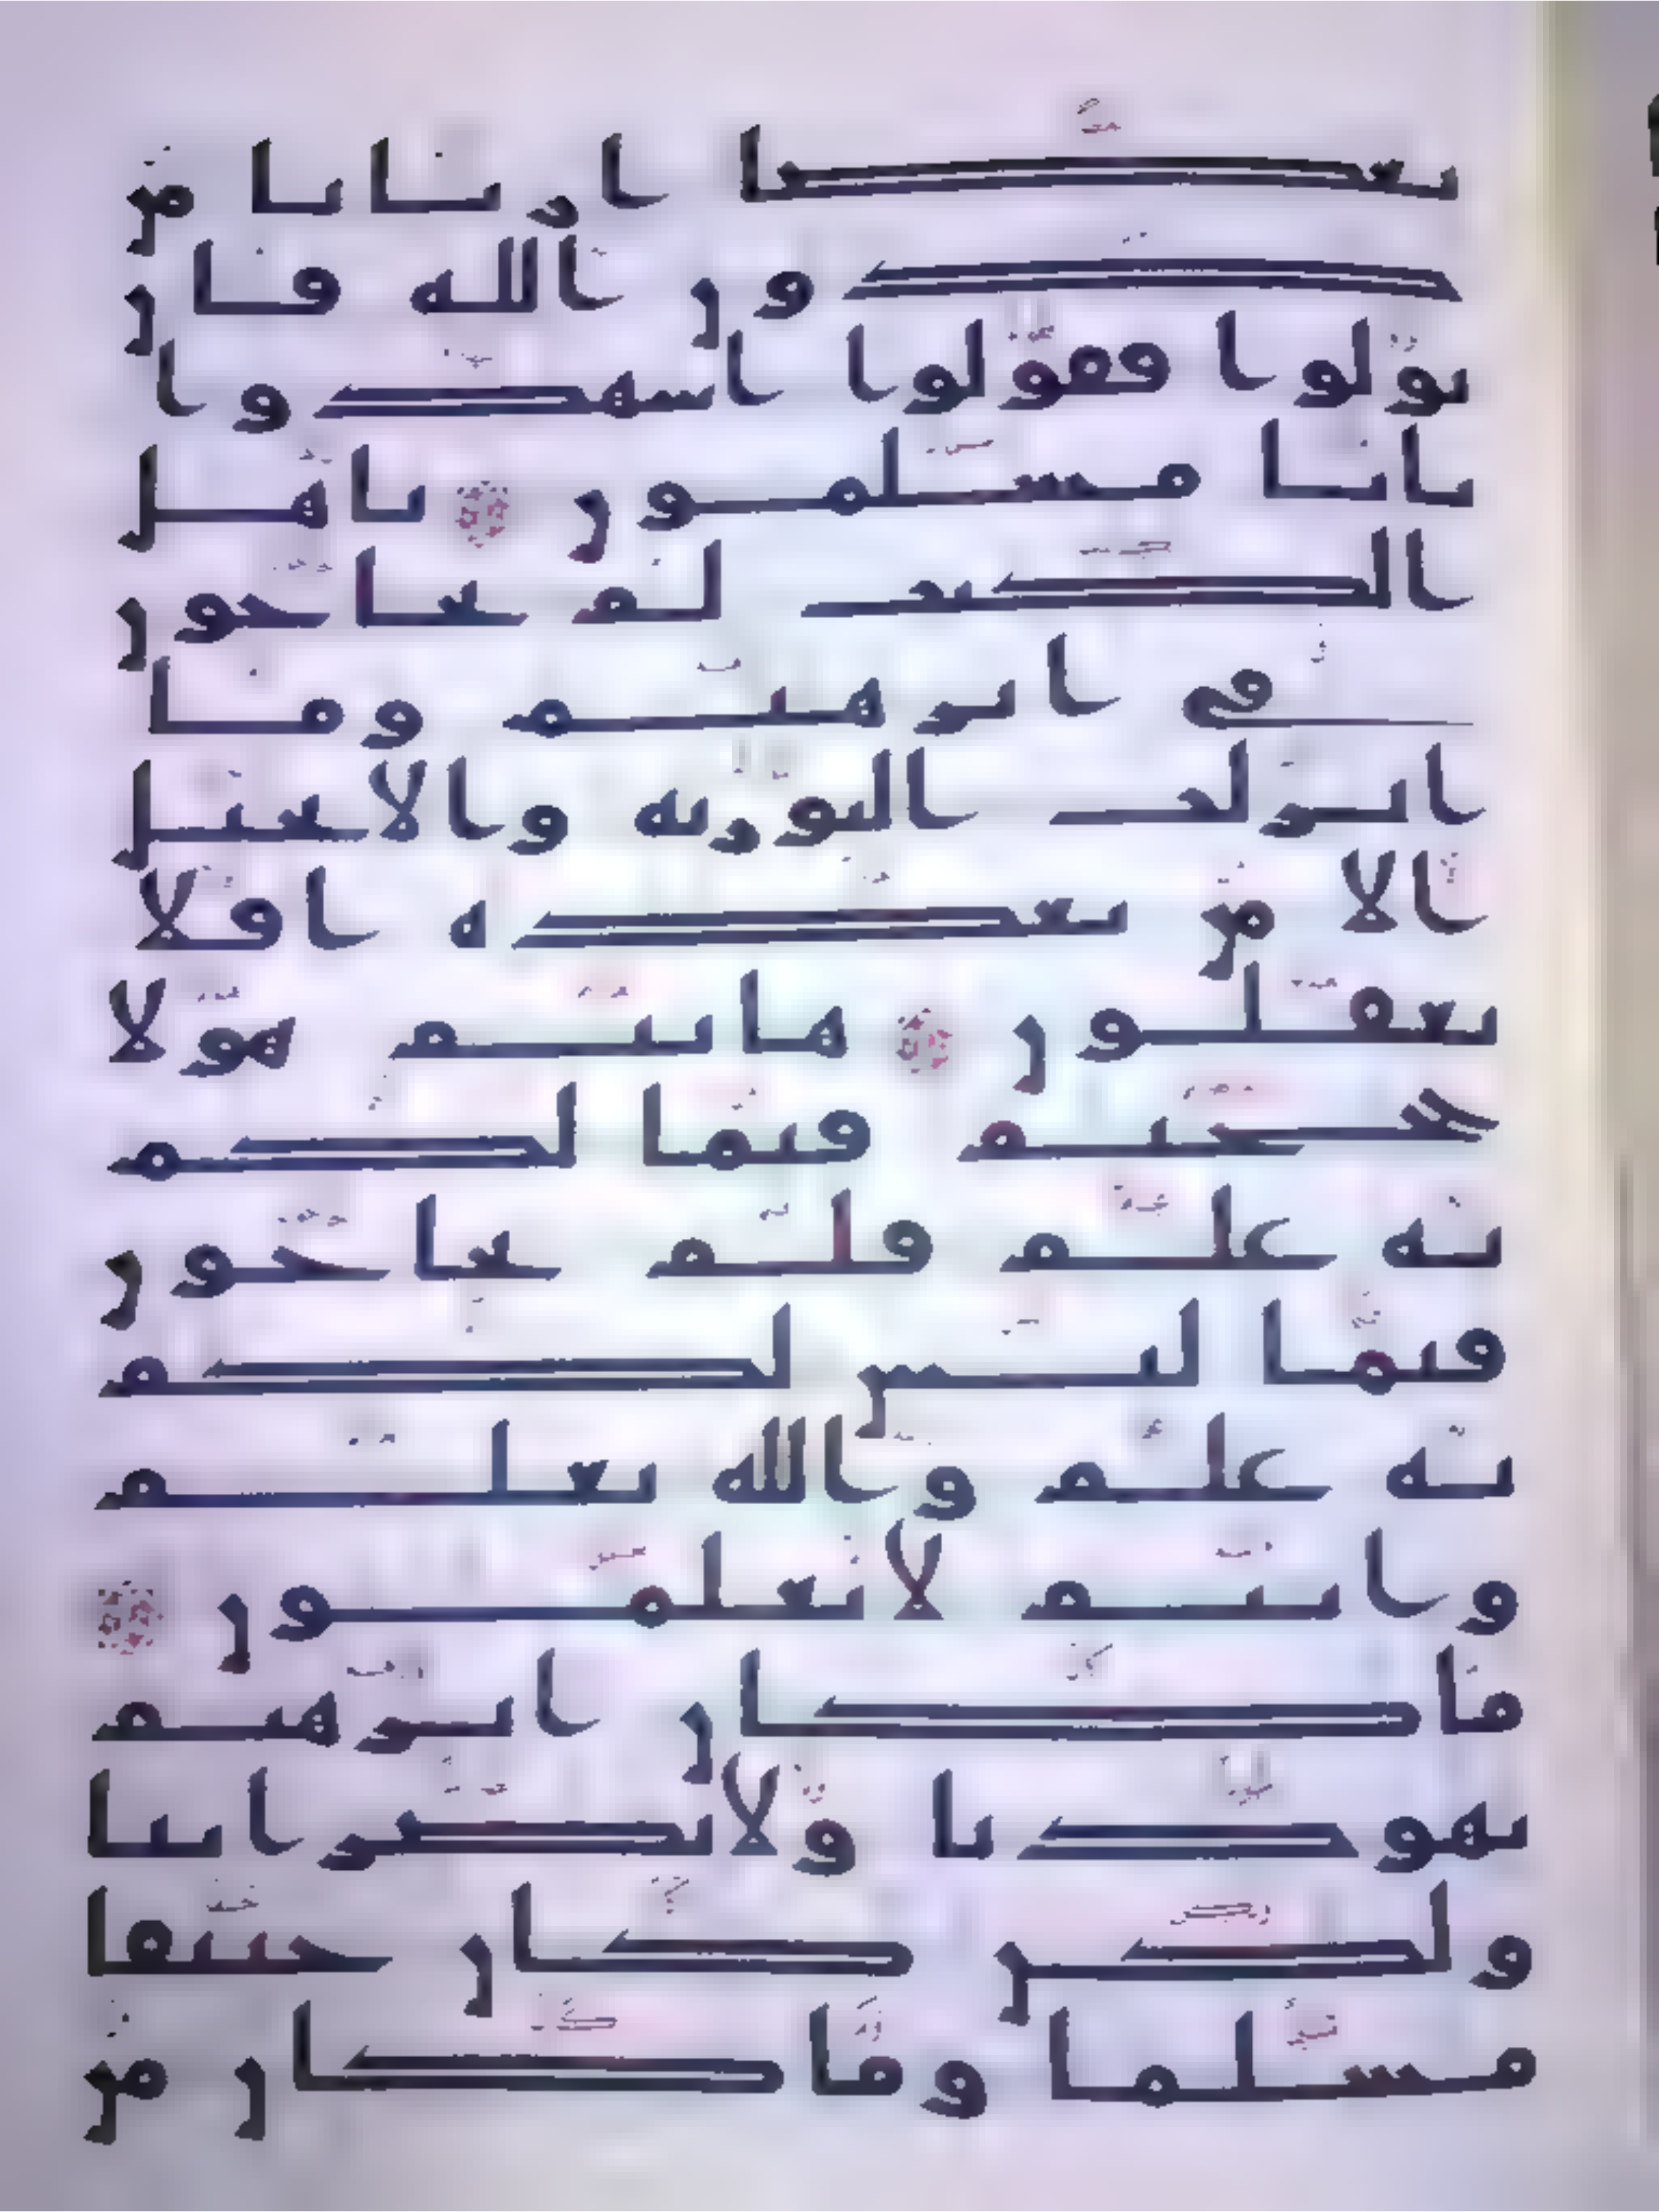 بعضا اربابا من
دون الله فان
تولوا فقولوا اشهدوا
بانا مسلمون ياهل
الكتب لم تحاجون
في ابرهيم وما
انزلت التوریة والانجيل
الا من بعده افلا
تعقلون هانتم هولا
حججتم فيما لكم
به علم فلم تحاجون
فيما ليس لكم
به علم والله يعلم
وانتم لا تعلمون
ما كان ابرهيم
يهوديا ولا نصرانيا
ولكن كان حنيفا
مسلما وما كان من